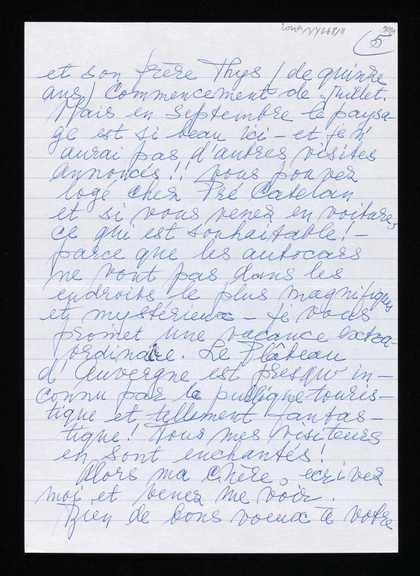 5
et son frère Thys (de quinze
ans) commencement de juillet.
Mais en septembre le paysa-
ge est si beau ici - et je n'
aurai pas d'autres visites
annoncés!! Vous pouvez
logé chez Pré Catelan
et si vous venez en voiture,
ce qui est souhaitable! -
parce que les autocars
ne vont pas dans les
endroits le plus magnifiques
et mystérieux - je vous
promet une vacance extra-
ordinaire. Le Plâteau
d'Auvergne est presqu'in-
connu par le publique touris-
tique et tellement fantas-
tique! Tous mes visiteurs
en sont enchantés!
Alors ma Chère, ecrivez
moi et venez me voir.
Bien de bons voeux à votre